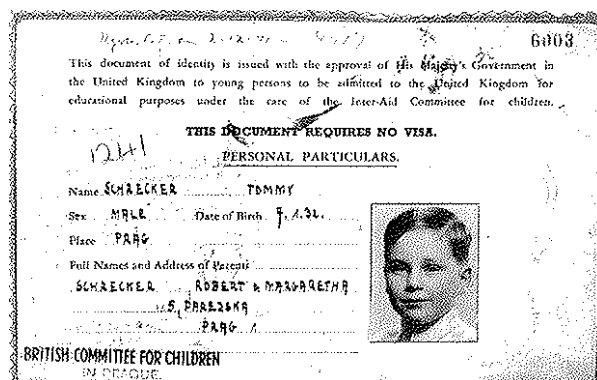 6003
This document of identity is issued with the approval of His Majesty's Government in
the United Kingdom to young persons to be admitted to the United Kingdom for
educational purposes under the care of the Inter-Aid Committee for children.
THIS DOCUMENT REQUIRES NO VISA.
1241
PERSONAL PARTICULARS.
Name SCHRECKER TOMMY
Sex MALE Date of Birth 7.1.32.
Place PRAG
Full Names and Address of Parents
SCHRECKER ROBERT & MARGARETHA
5, PAREZSKA
PRAG 1
BRITISH COMMITTEE FOR CHILDREN
IN PRAGUE.